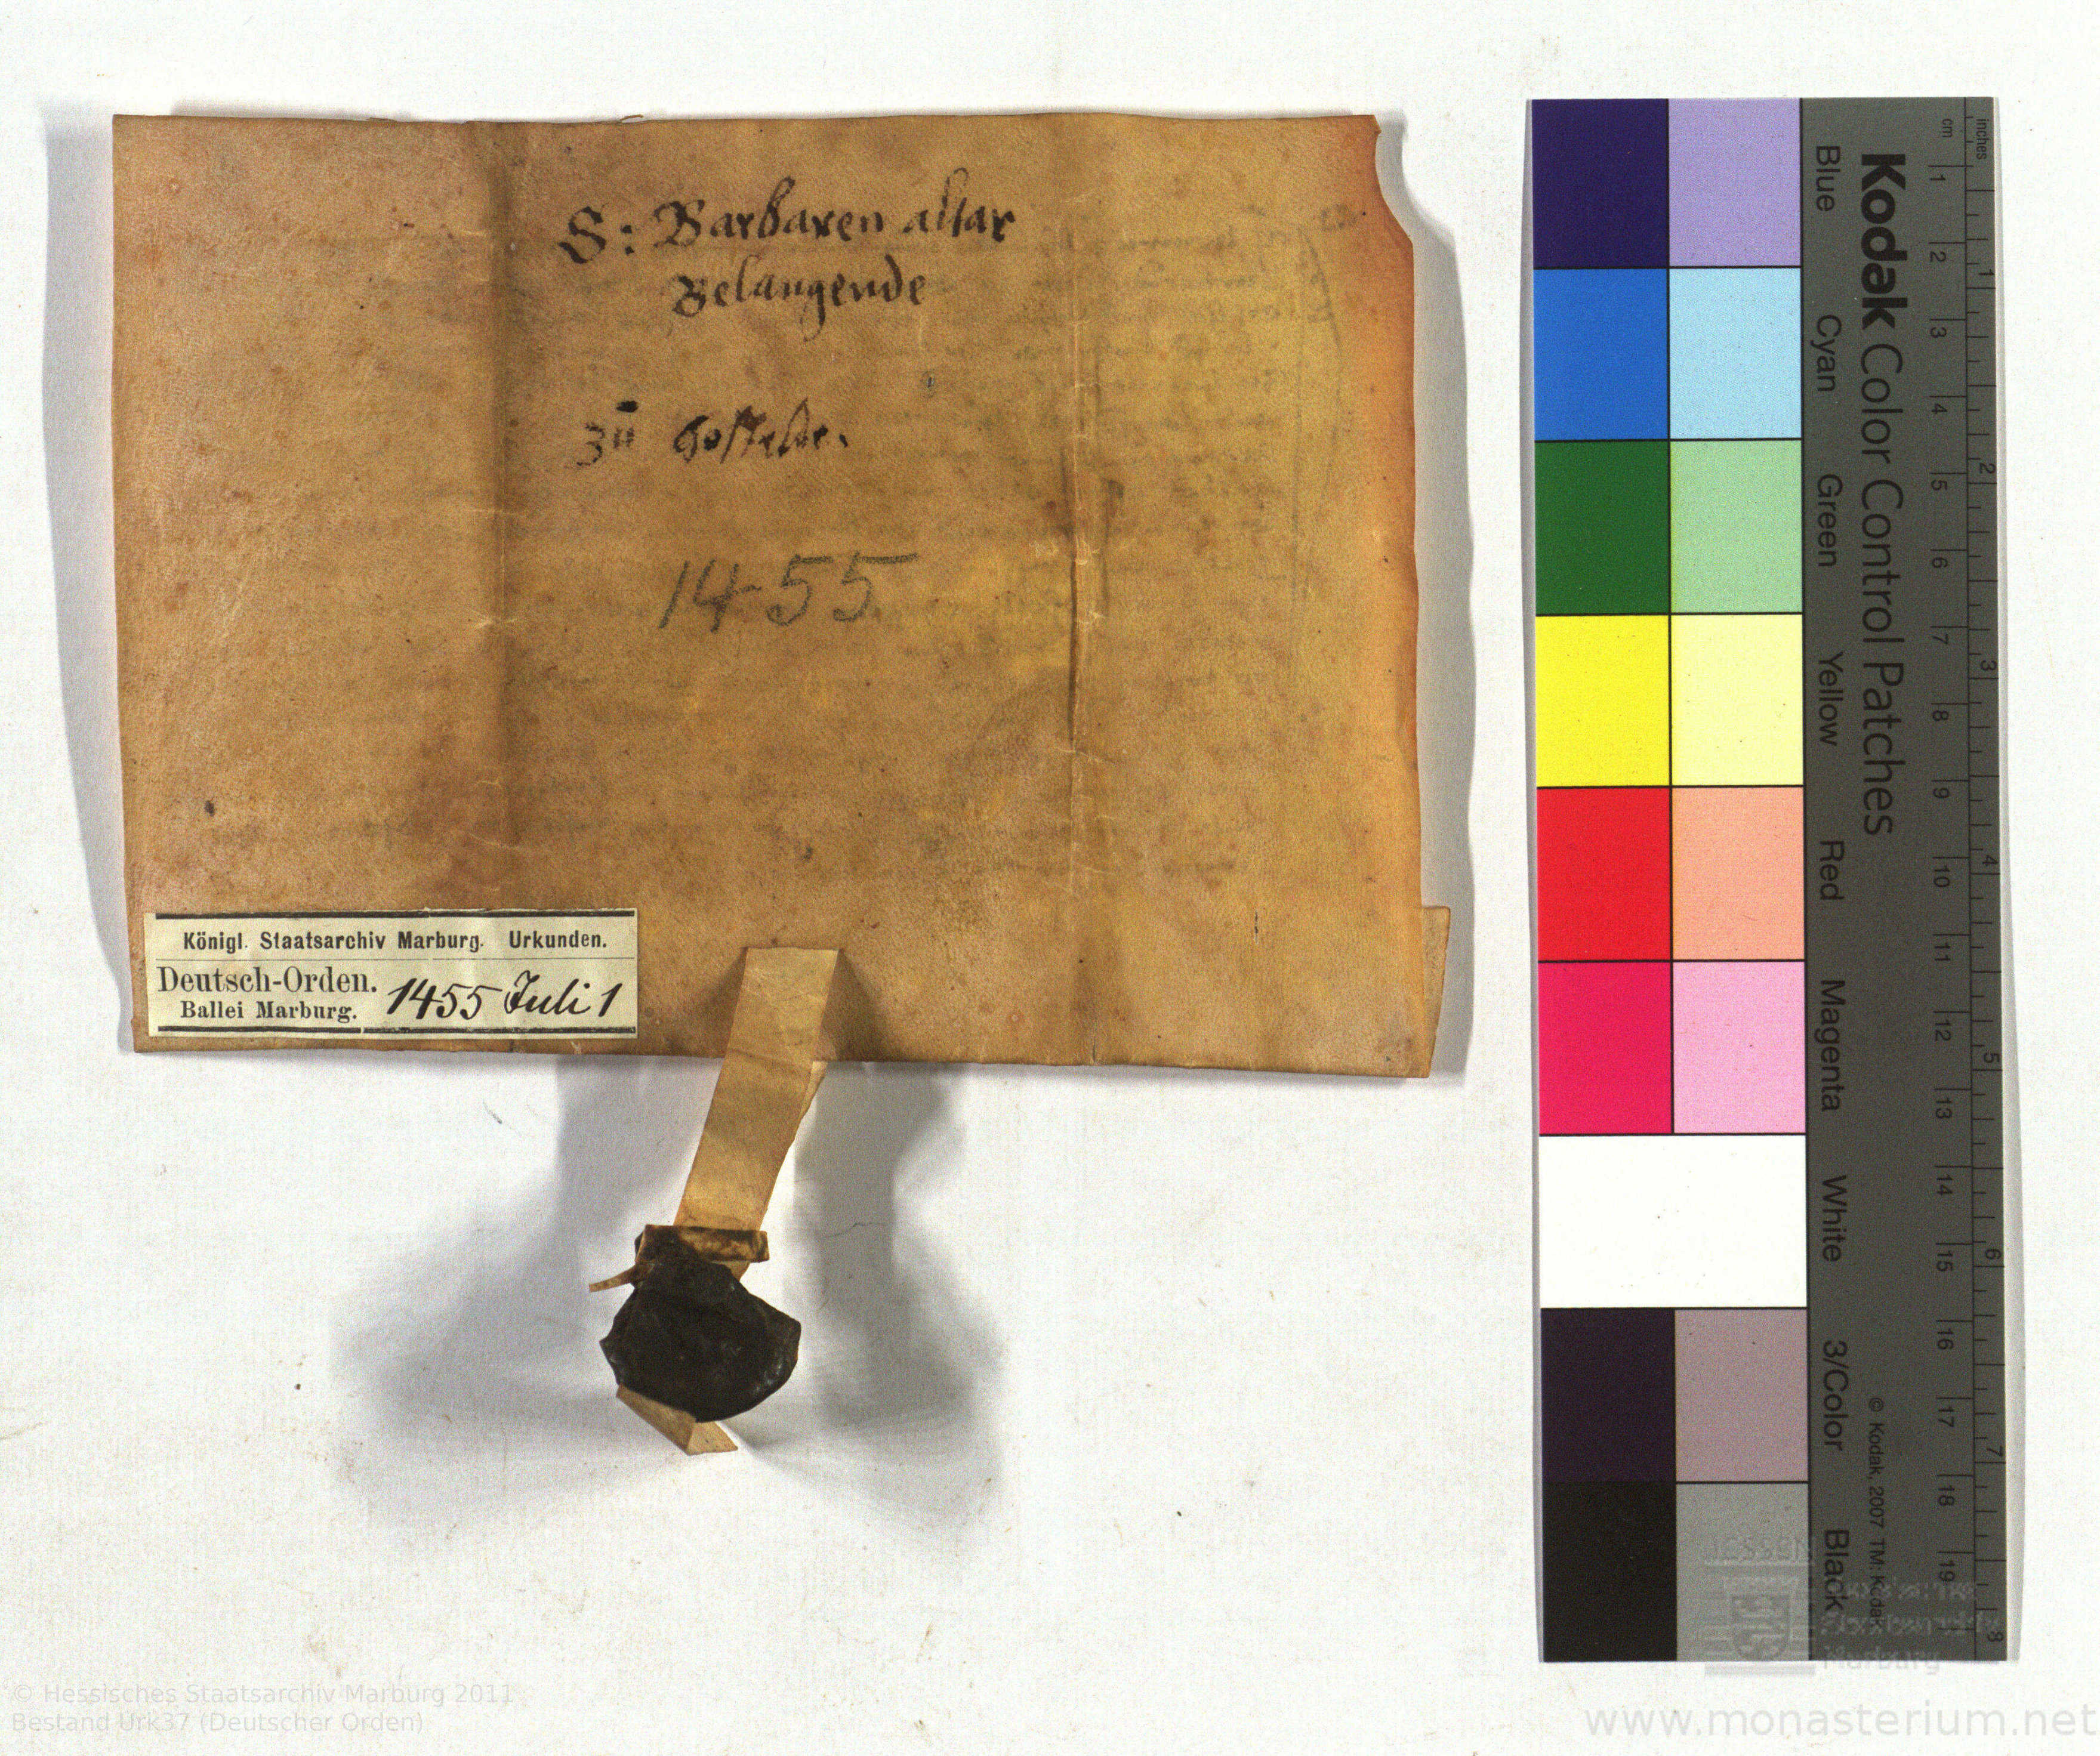 S: Barbaren altar
Belangende
zu
1455
Königl. Staatsarchiv Marburg. Urkunden.
Deutsch-Orden.
Ballei Marburg.
1455 Juli 1
Kodak Color Control Patches
Blue Cyan Green Yellow Red Magenta White 3/Color Black
cm 1 2 3 4 5 6 7 8 9 10 11 12 13 14 15 16 17 18 19
inches 1 2 3 4 5 6 7 8
© Kodak, 2007 TM: Kodak
HESSEN
Marburg
© Hessisches Staatsarchiv Marburg 2011
Bestand Urk37 (Deutscher Orden)
www.monasterium.net